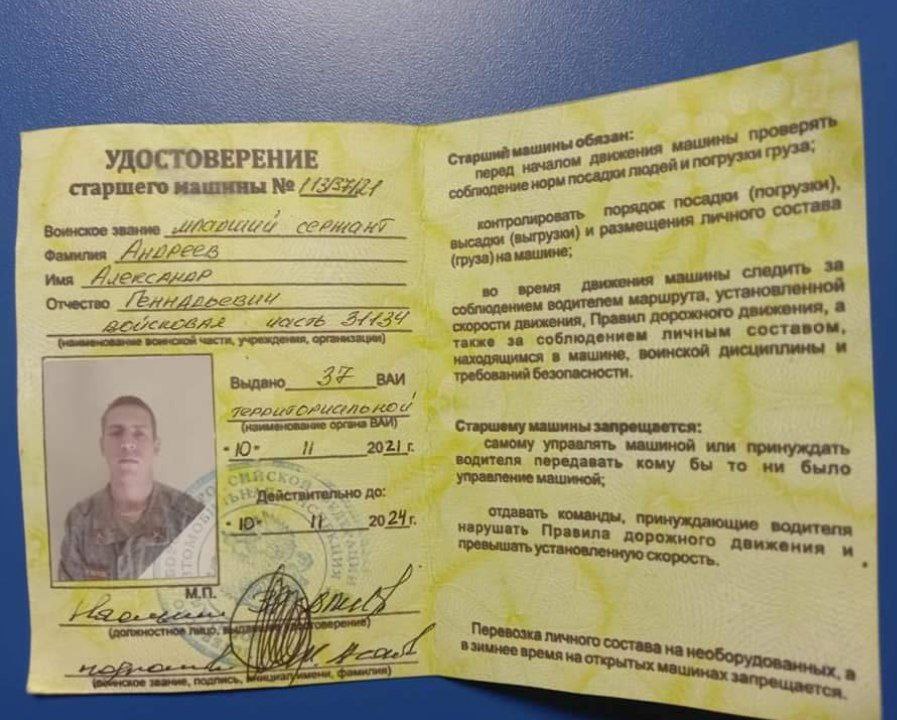 УДОСТОВЕРЕНИЕ
старшего машины № 113/37/21
Воинское звание младший сержант
Фамилия Андреев
Имя Александр
Отчество Геннадьевич
войсковая часть 31134
(наименование воинской части, учреждения, организации)
Выдано 37 ВАИ
территориальной
(наименование органа ВАИ)
"10" 11 2021 г.
Действительно до:
"10" 11 2024 г.
М.П.
(должностное лицо, выдавшее удостоверение)
(воинское звание, подпись, инициал имени, фамилия)
Старший машины обязан:
перед началом движения машины проверять
соблюдение норм посадки людей и погрузки груза;
контролировать порядок посадки (погрузки),
высадки (выгрузки) и размещения личного состава
(груза) на машине;
во время движения машины следить за
соблюдением водителем маршрута, установленной
скорости движения, Правил дорожного движения, а
также за соблюдением личным составом,
находящимся в машине, воинской дисциплины и
требований безопасности.
Старшему машины запрещается:
самому управлять машиной или принуждать
водителя передавать кому бы то ни было
управление машиной;
отдавать команды, принуждающие водителя
нарушать Правила дорожного движения и
превышать установленную скорость.
Перевозка личного состава на необорудованных, а
в зимнее время на открытых машинах запрещается.